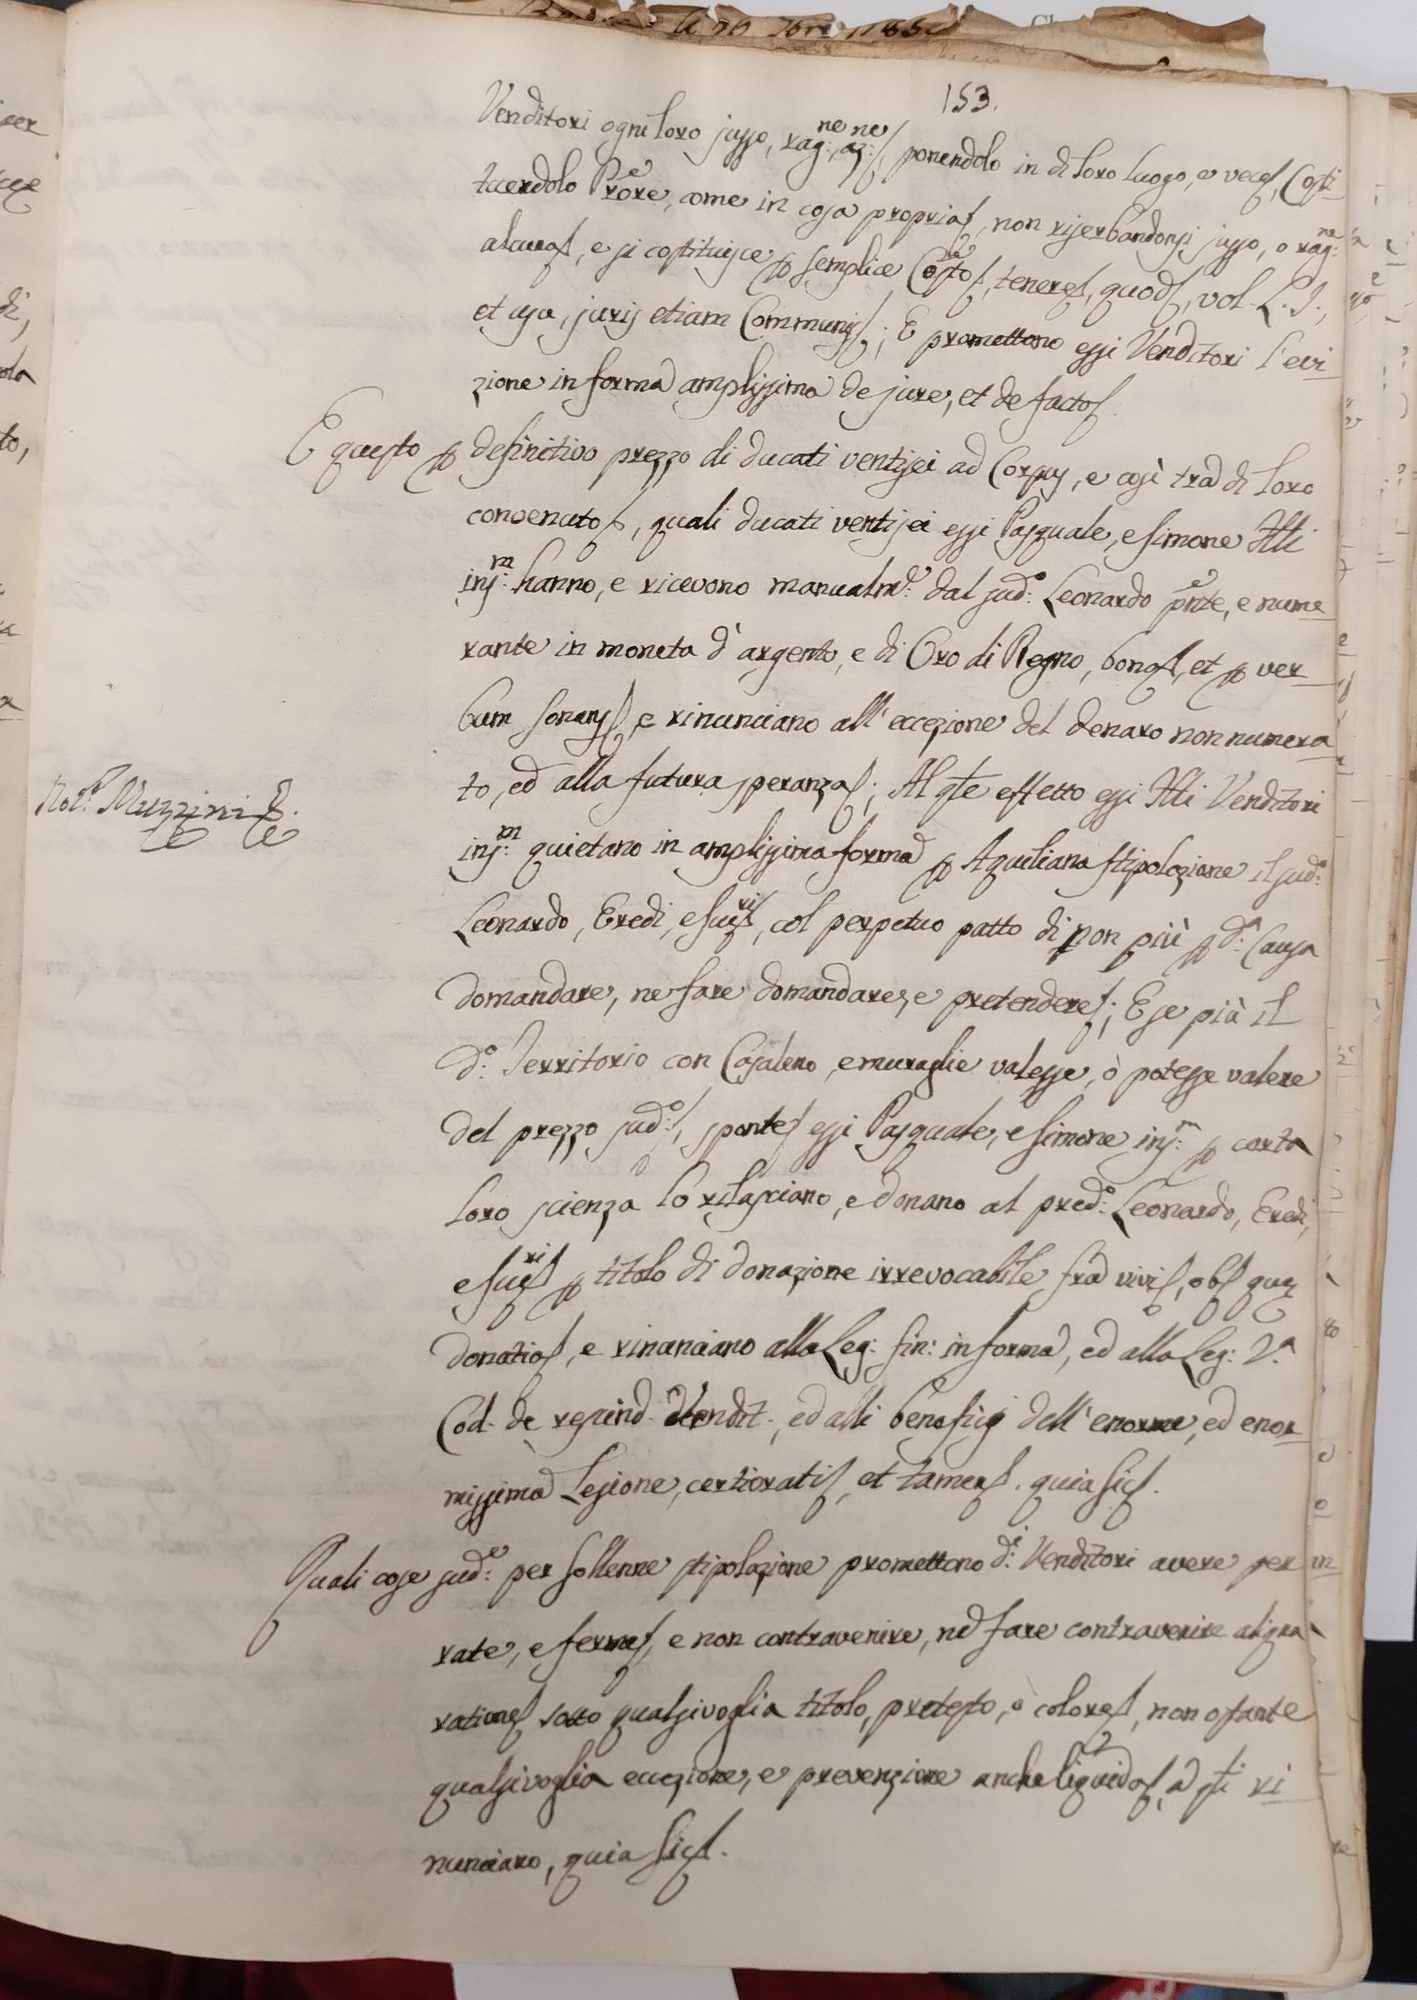 153.
Venditori ogni loro jusso, rag:ne, az:ne, ponendolo in di loro luogo, e vece, Costi
tuendolo Prore, come in cosa propria, non riserbandonsi jusso, o rag:ne
alcuna, e si costituisce p semplice Costo, tenere, quod, vol. L. I.,
et usu, juris etiam Communis; E promettono essi Venditori l'evi
zione in forma amplissima de jure, et de facto.
E questo p definitivo prezzo di ducati ventisei ad Corpus, e così tra di loro
convenuto, quali ducati ventisei essi Pasquale, e Simone Atti
ins:m hanno, e ricevono manualm:e dal sud:o Leonardo pnte, e nume
rante in moneta d'argento, e di Oro di Regno, bona, et p ver
bum sonans, e rinunciano all'eccezione del denaro non numera
to, ed alla futura speranza; Al qte effetto essi Atti Venditori
Not:r Muzzini
ins:m quietano in amplissima forma p Aquiliana stipolazione il sud:o
Leonardo, Eredi, e suss:ri, col perpetuo patto di non più p d:a Causa
domandare, ne fare domandare, e pretendere; E se più il
d:o Territorio con Casaleno, e muraglie valesse, ò potesse valere
del prezzo sud:o, sponte essi Pasquale, e Simone ins:m p certa
loro scienza lo rilasciano, e donano al pred:o Leonardo, Eredi,
e suss:ri p titolo di donazione irrevocabile fra vivi, ob quæ
donatio, e rinunciano alla Leg: fin: in forma, ed alla Leg: 2.a
Cod. de rescind. Vendit., ed alli beneficij dell'enorme, ed enor
missima Lesione, certiorati, et tamen. quia sic.
Quali cose sud:e per sollenne stipolazione promettono d:i Venditori avere per
rate, e ferme, e non contravenire, nè fare contravenire aliqua
ratione sotto qualsivoglia titolo, pretesto, ò colore, non ostante
qualsivoglia eccezione, e prevenzione anche liquida, a qsti ri
nunciaro, quia sic.